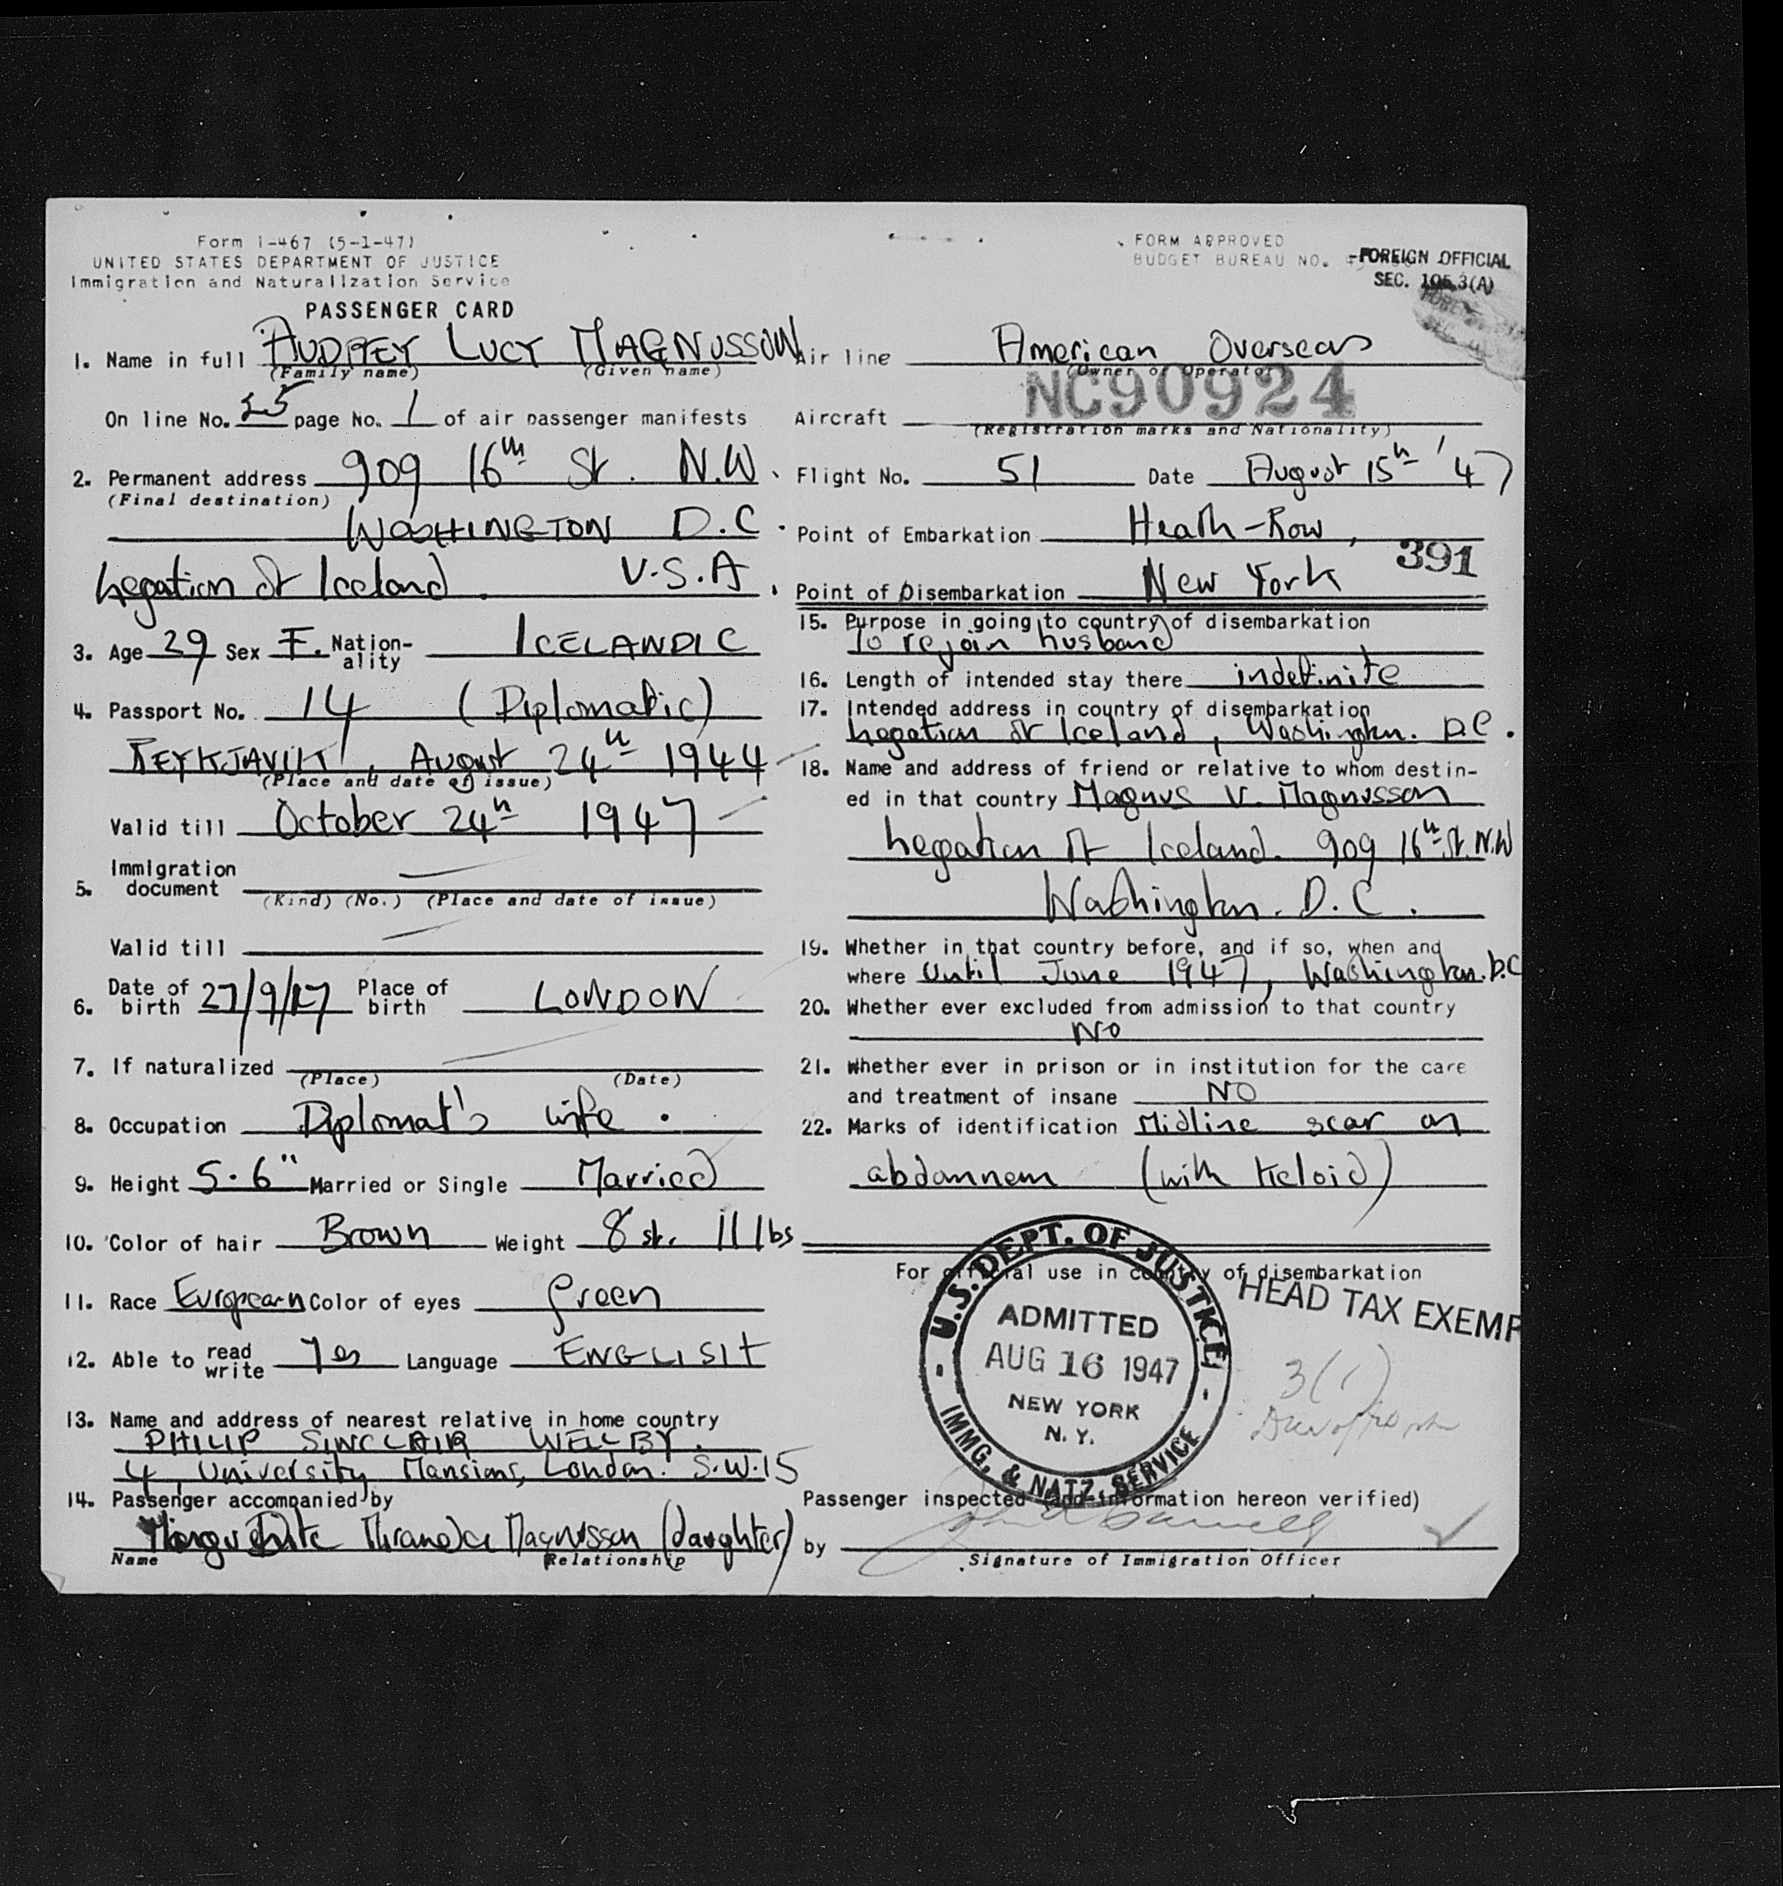 Form I-467 (5-1-47)
UNITED STATES DEPARTMENT OF JUSTICE
Immigration and Naturalization Service
PASSENGER CARD
1. Name in full AUDREY LUCY MAGNUSSON
(Family name) (Given name)
On line No. 25 page No. 1 of air passenger manifests
2. Permanent address 909 16th St. N.W.
(Final destination)
WASHINGTON D.C.
Legation of Iceland. U.S.A.
3. Age 29 Sex F. Nation-ality ICELANDIC
4. Passport No. 14 (Diplomatic)
REYKJAVIK, August 24th 1944
(Place and date of issue)
Valid till October 24th 1947
5. Immigration document
(Kind) (No.) (Place and date of issue)
Valid till
6. Date of birth 27/9/17 Place of birth LONDON
7. If naturalized
(Place) (Date)
8. Occupation Diplomat's wife.
9. Height 5.6" Married or Single Married
10. Color of hair Brown Weight 8 st. 11 lbs
11. Race European Color of eyes Green
12. Able to read write Yes Language ENGLISH
13. Name and address of nearest relative in home country
PHILIP SINCLAIR WELLBY.
4, University Mansions, London. S.W.15
14. Passenger accompanied by
Marguerite Miranda Magnusson (daughter)
Name Relationship
FORM APPROVED
BUDGET BUREAU NO.
FOREIGN OFFICIAL
SEC. 105.3(A)
Air line American Overseas
(Owner or Operator)
Aircraft NC90924
(Registration marks and Nationality)
Flight No. 51 Date August 15th '47
Point of Embarkation Heath-Row,
391
Point of Disembarkation New York
15. Purpose in going to country of disembarkation
To rejoin husband
16. Length of intended stay there indefinite
17. Intended address in country of disembarkation
Legation of Iceland, Washington. D.C.
18. Name and address of friend or relative to whom destin-
ed in that country Magnus V. Magnusson
Legation of Iceland. 909 16th St. N.W
Washington. D.C.
19. Whether in that country before, and if so, when and
where Until June 1947, Washington. D.C
20. Whether ever excluded from admission to that country
NO
21. Whether ever in prison or in institution for the care
and treatment of insane NO
22. Marks of identification Midline scar on
abdomnem (with Keloid)
For official use in country of disembarkation
HEAD TAX EXEMP
U.S. DEPT. OF JUSTICE
ADMITTED
AUG 16 1947
NEW YORK
N.Y.
IMMG. & NATZ. SERVICE
3(1)
Passenger inspected (and information hereon verified)
by
Signature of Immigration Officer